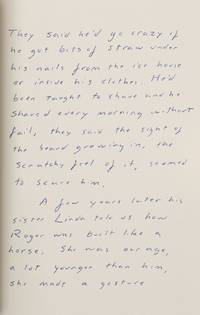 They said he'd go crazy if
he got bits of straw under
his nails from the ice house
or inside his clothes. He'd
been taught to shave and he
shaved every morning without
fail, they said the sight of
the beard growing in, the
scratchy feel of it, seemed
to scare him.
A few years later his
sister Linda told us how
Roger was built like a
horse. She was our age,
a lot younger than him,
she made a gesture